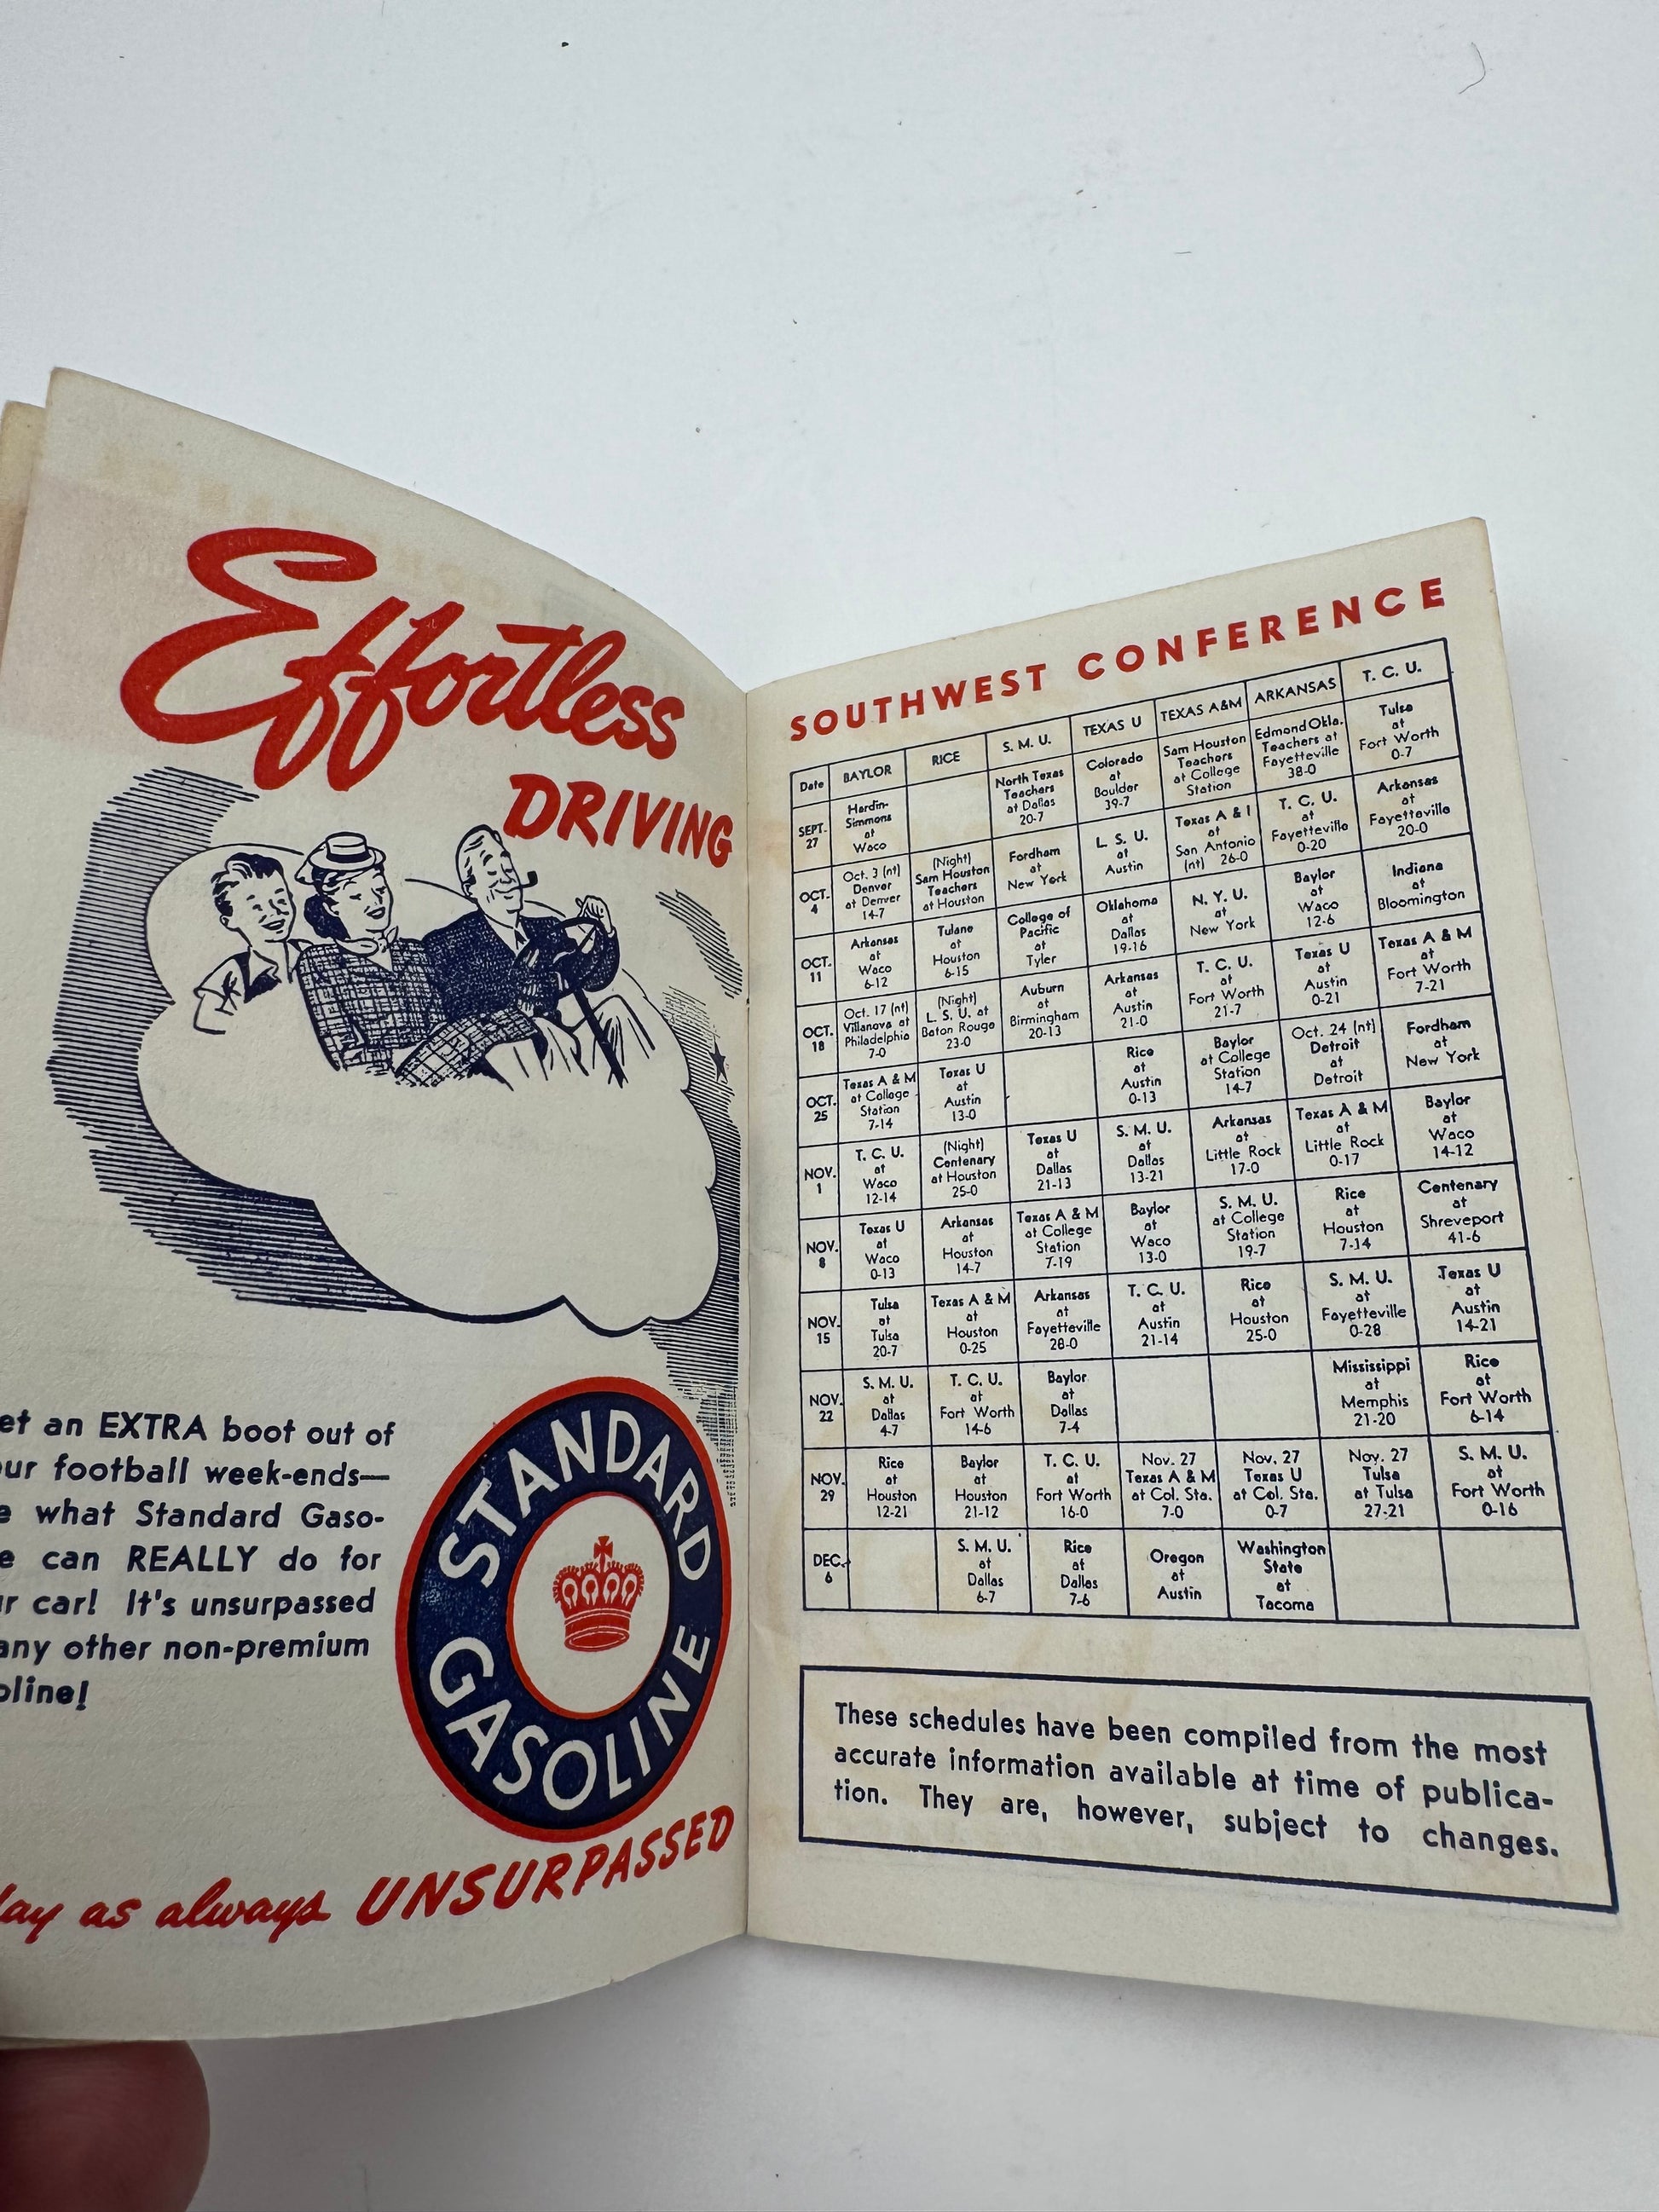 Effortless
DRIVING
et an EXTRA boot out of
ur football week-ends—
e what Standard Gaso-
e can REALLY do for
r car! It's unsurpassed
any other non-premium
oline!
STANDARD
GASOLINE
lay as always UNSURPASSED
SOUTHWEST CONFERENCE
Date
BAYLOR
RICE
S. M. U.
TEXAS U
TEXAS A&M
ARKANSAS
T. C. U.
SEPT.
27
Hardin-
Simmons
at
Waco
North Texas
Teachers
at Dallas
20-7
Colorado
at
Boulder
39-7
Sam Houston
Teachers
at College
Station
Edmond Okla.
Teachers at
Fayetteville
38-0
Tulsa
at
Fort Worth
0-7
OCT.
4
Oct. 3 (nt)
Denver
at Denver
14-7
(Night)
Sam Houston
Teachers
at Houston
Fordham
at
New York
L. S. U.
at
Austin
Texas A & I
at
San Antonio
(nt) 26-0
T. C. U.
at
Fayetteville
0-20
Arkansas
at
Fayetteville
20-0
OCT.
11
Arkansas
at
Waco
6-12
Tulane
at
Houston
6-15
College of
Pacific
at
Tyler
Oklahoma
at
Dallas
19-16
N. Y. U.
at
New York
Baylor
at
Waco
12-6
Indiana
at
Bloomington
OCT.
18
Oct. 17 (nt)
Villanova at
Philadelphia
7-0
(Night)
L. S. U. at
Baton Rouge
23-0
Auburn
at
Birmingham
20-13
Arkansas
at
Austin
21-0
T. C. U.
at
Fort Worth
21-7
Texas U
at
Austin
0-21
Texas A & M
at
Fort Worth
7-21
OCT.
25
Texas A & M
at College
Station
7-14
Texas U
at
Austin
13-0
Rice
at
Austin
0-13
Baylor
at College
Station
14-7
Oct. 24 (nt)
Detroit
at
Detroit
Fordham
at
New York
NOV.
1
T. C. U.
at
Waco
12-14
(Night)
Centenary
at Houston
25-0
Texas U
at
Dallas
21-13
S. M. U.
at
Dallas
13-21
Arkansas
at
Little Rock
17-0
Texas A & M
at
Little Rock
0-17
Baylor
at
Waco
14-12
NOV.
8
Texas U
at
Waco
0-13
Arkansas
at
Houston
14-7
Texas A & M
at College
Station
7-19
Baylor
at
Waco
13-0
S. M. U.
at College
Station
19-7
Rice
at
Houston
7-14
Centenary
at
Shreveport
41-6
NOV.
15
Tulsa
at
Tulsa
20-7
Texas A & M
at
Houston
0-25
Arkansas
at
Fayetteville
28-0
T. C. U.
at
Austin
21-14
Rice
at
Houston
25-0
S. M. U.
at
Fayetteville
0-28
Texas U
at
Austin
14-21
NOV.
22
S. M. U.
at
Dallas
4-7
T. C. U.
at
Fort Worth
14-6
Baylor
at
Dallas
7-4
Mississippi
at
Memphis
21-20
Rice
at
Fort Worth
6-14
NOV.
29
Rice
at
Houston
12-21
Baylor
at
Houston
21-12
T. C. U.
at
Fort Worth
16-0
Nov. 27
Texas A & M
at Col. Sta.
7-0
Nov. 27
Texas U
at Col. Sta.
0-7
Nov. 27
Tulsa
at Tulsa
27-21
S. M. U.
at
Fort Worth
0-16
DEC.
6
S. M. U.
at
Dallas
6-7
Rice
at
Dallas
7-6
Oregon
at
Austin
Washington
State
at
Tacoma
These schedules have been compiled from the most
accurate information available at time of publica-
tion. They are, however, subject to changes.